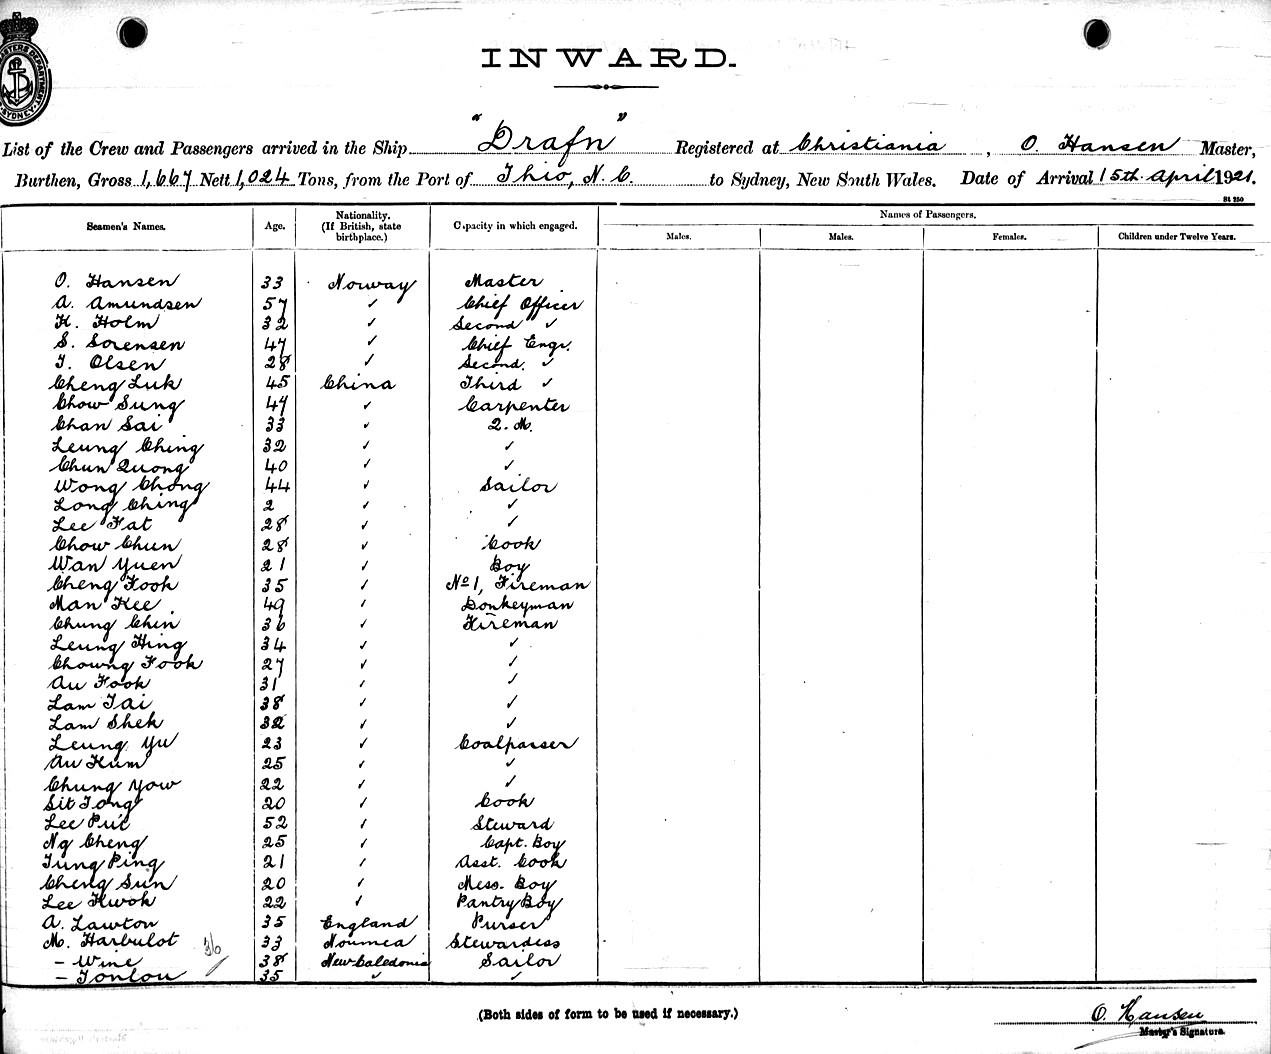 INWARD.
List of the Crew and Passengers arrived in the Ship "Drafn" Registered at Christiania, O. Hansen Master,
Burthen, Gross 1,667 Nett 1,024 Tons, from the Port of Thio, N.C. to Sydney, New South Wales. Date of Arrival 15th April 1921.
St 250
Seamen's Names. Age. Nationality. (If British, state birthplace.) Capacity in which engaged. Names of Passengers.
Males. Males. Females. Children under Twelve Years.
O. Hansen 33 Norway Master
A. Amundsen 57 ✓ Chief Officer
H. Holm 32 ✓ Second ✓
S. Sorensen 47 ✓ Chief Engr.
T. Olsen 28 ✓ Second. ✓
Cheng Luk 45 China Third ✓
Chow Sung 47 ✓ Carpenter
Chan Sai 33 ✓ Q. M.
Leung Ching 32 ✓ ✓
Chun Quong 40 ✓ ✓
Wong Chong 44 ✓ Sailor
Long Ching 2 ✓ ✓
Lee Fat 28 ✓ ✓
Chow Chun 28 ✓ Cook
Wan Yuen 21 ✓ Boy
Cheng Fook 35 ✓ No 1, Fireman
Man Kee 49 ✓ Donkeyman
Chung Chin 36 ✓ Fireman
Leung Hing 34 ✓ ✓
Chowng Fook 27 ✓ ✓
Au Fook 31 ✓ ✓
Lam Tai 38 ✓ ✓
Lam Shek 32 ✓ ✓
Leung Yu 23 ✓ Coalpasser
Au Kum 25 ✓ ✓
Chung Yow 22 ✓ ✓
Sit Tong 20 ✓ Cook
Lee Pui 52 ✓ Steward
Ng Cheng 25 ✓ Capt. Boy
Tung Ping 21 ✓ Asst. Cook
Cheng Sun 20 ✓ Mess. Boy
Lee Kwok 22 ✓ Pantry Boy
A. Lawton 35 England Purser
M. Harbulot 36 33 Noumea Stewardess
– Wine 38 New Caledonia Sailor
– Tonlou 35 ✓ ✓
(Both sides of form to be used if necessary.)
O. Hansen
Master's Signature.